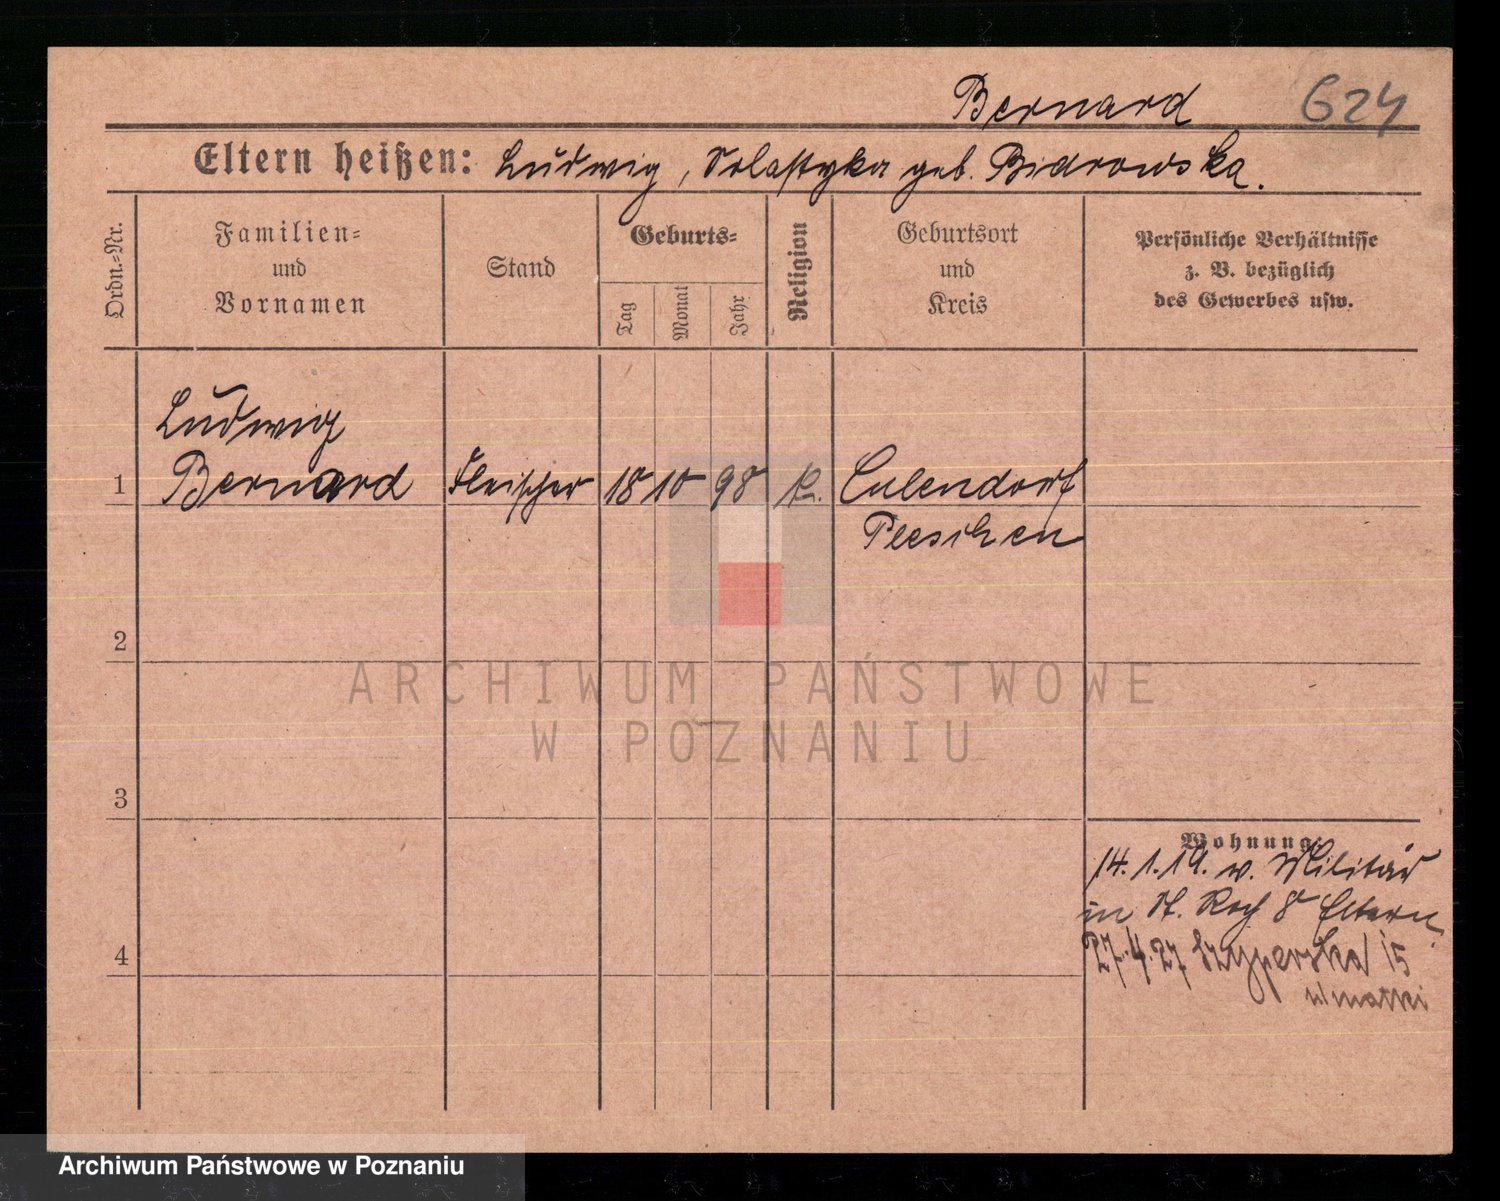 Bernard 624
Eltern heißen: Ludwig, Solastyka geb. Bidrowska.
Ordn.-Nr.
Familien- und Vornamen
Stand
Geburts-
Tag
Monat
Jahr
Religion
Geburtsort und Kreis
Persönliche Verhältnisse
z. B. bezüglich
des Gewerbes usw.
Ludwig
1 Bernard Fleischer 18 10 98 k. Eulendorf
Pleschen
2
3
4
Wohnung
14.1.19. v. Militär
in St. Roch 8 Eltern.
27.4.27 Szyperska 15
u/matki
ARCHIWUM PAŃSTWOWE
W POZNANIU
Archiwum Państwowe w Poznaniu